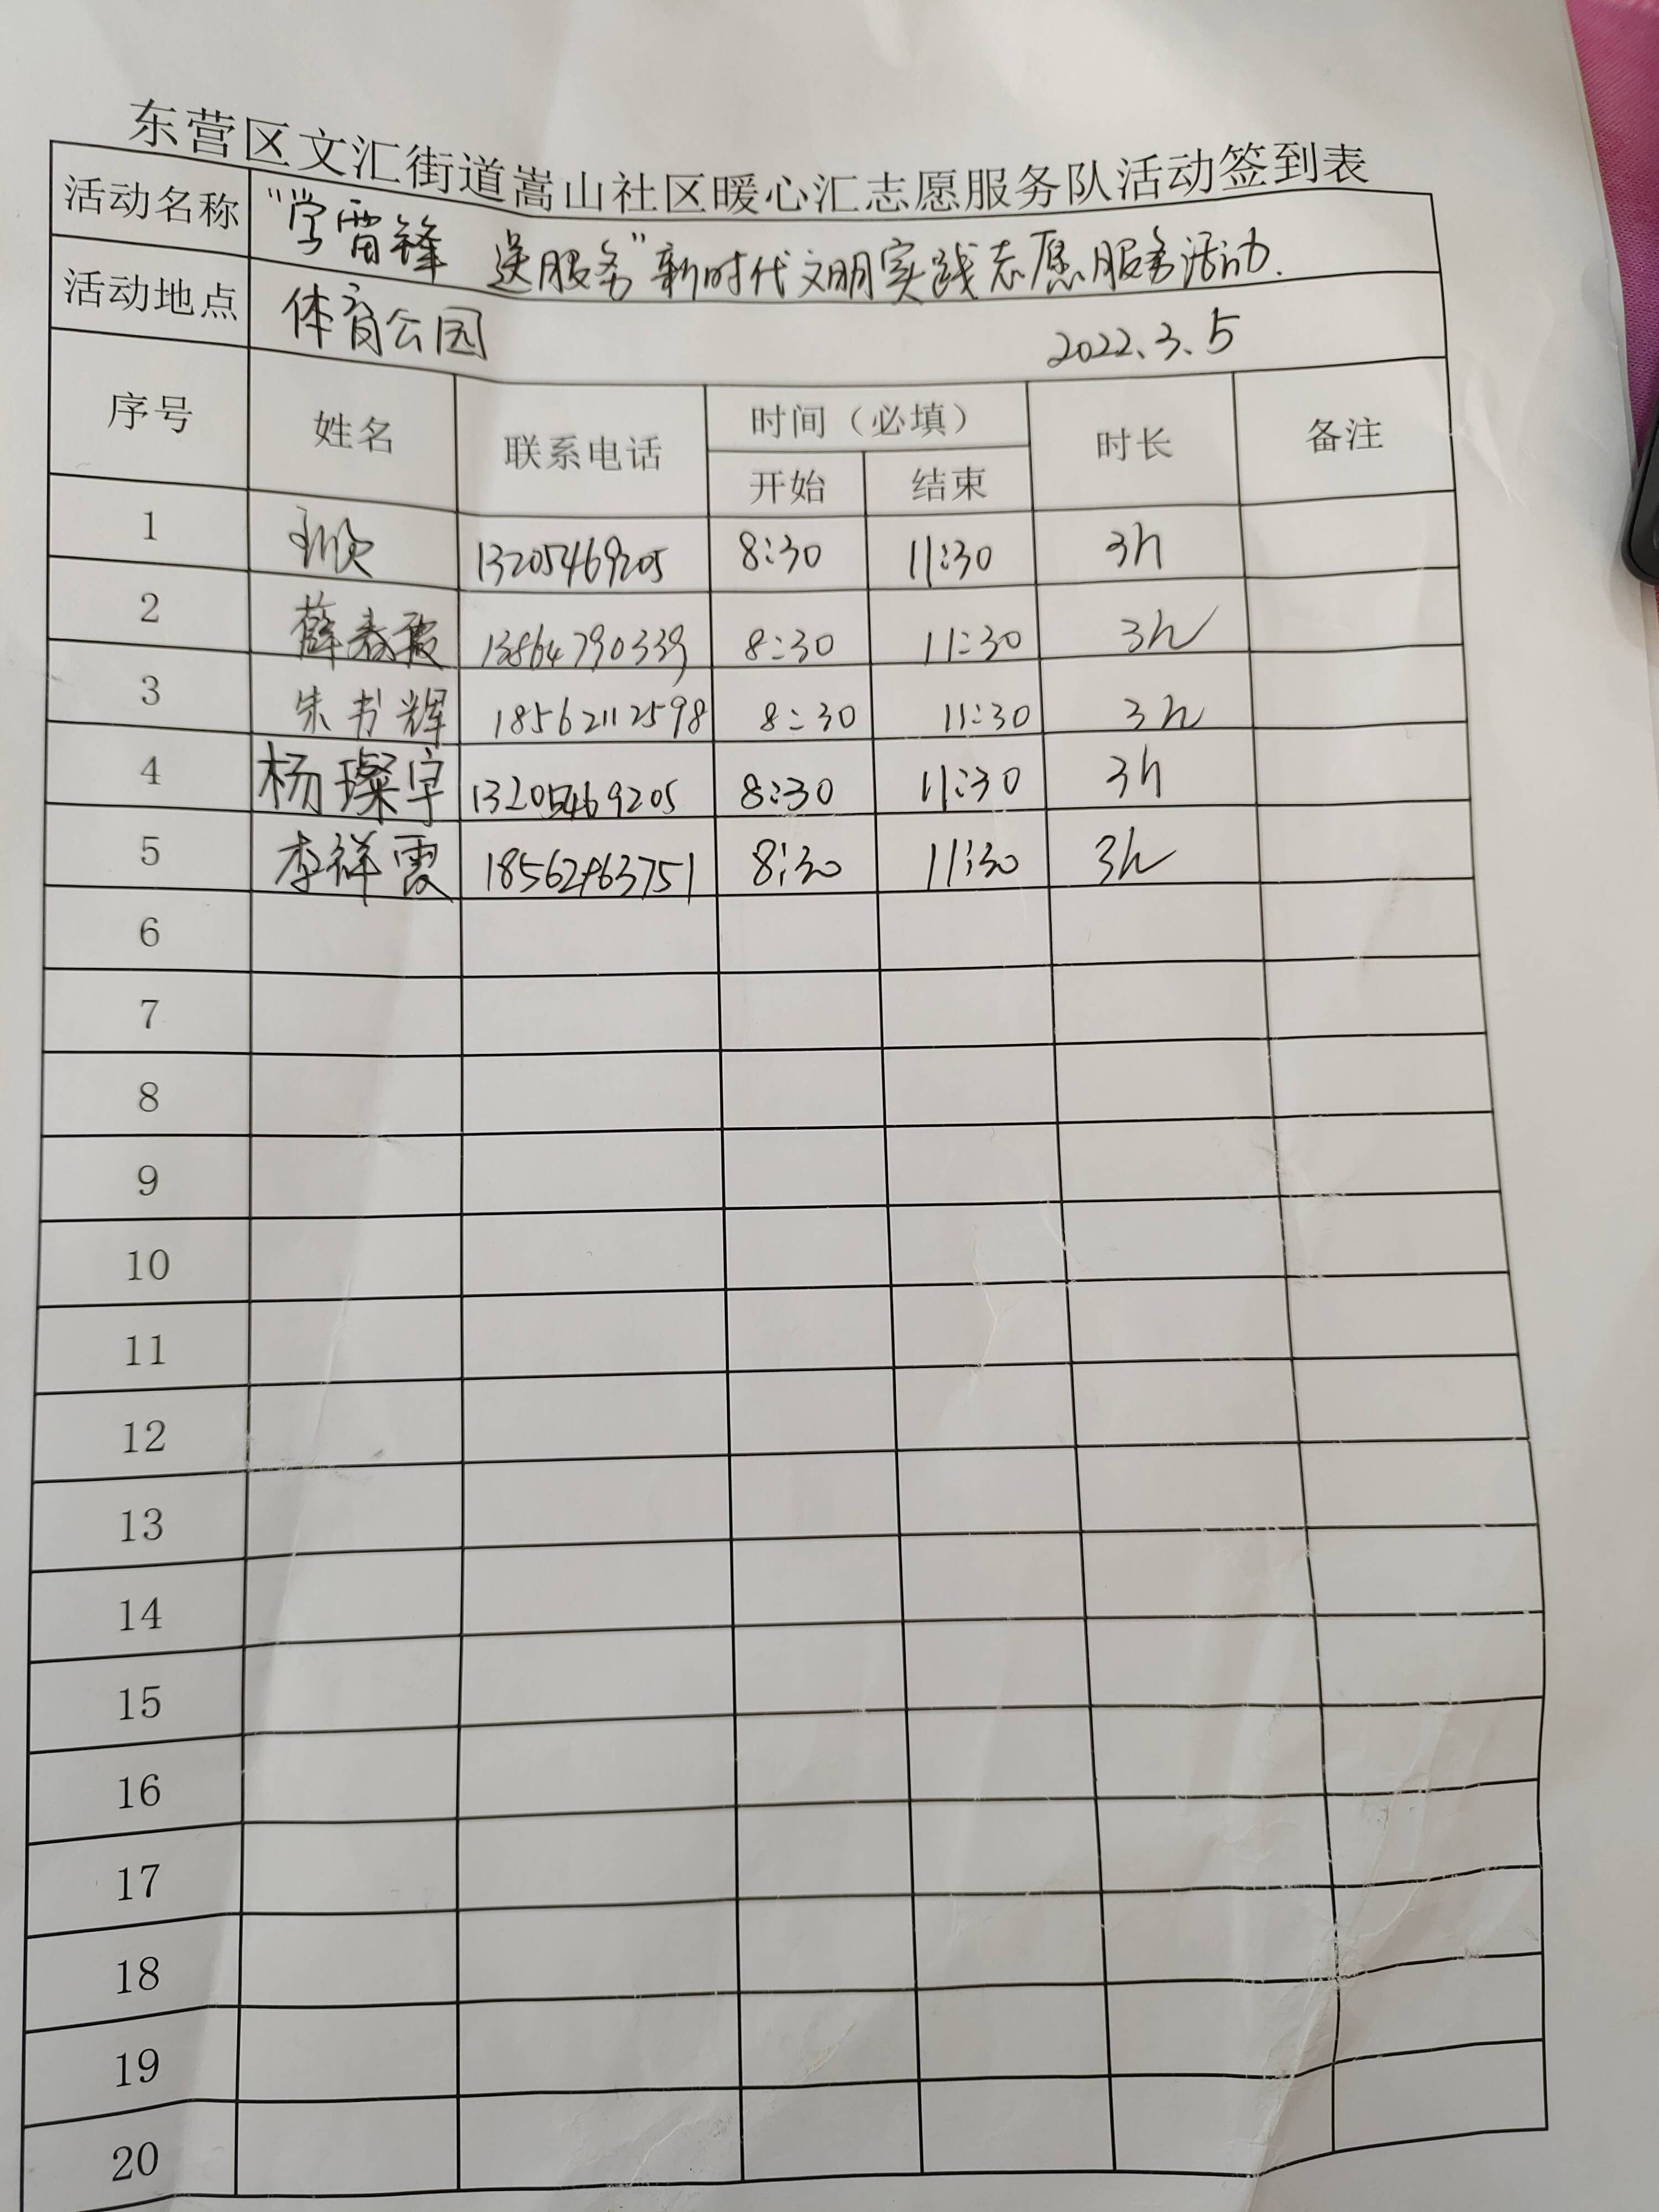 东营区文汇街道嵩山社区暖心汇志愿服务队活动签到表
活动名称 “学雷锋 送服务”新时代文明实践志愿服务活动.
活动地点 体育公园 2022.3.5
序号 姓名 联系电话 时间（必填） 时长 备注
开始 结束
1 13205469205 8:30 11:30 3h
2 薛春霞 13864790339 8:30 11:30 3h
3 朱书辉 18562112598 8:30 11:30 3h
4 杨璨宇 13205469205 8:30 11:30 3h
5 李祥霞 8:30 11:30 3h
6
7
8
9
10
11
12
13
14
15
16
17
18
19
20